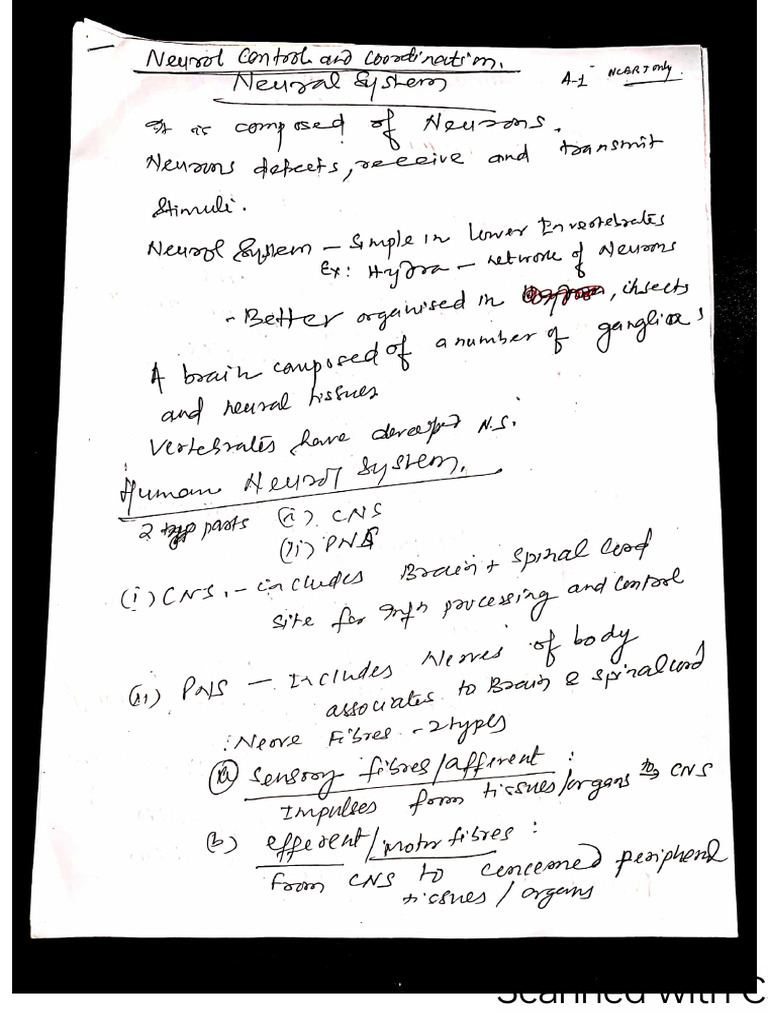 Neural Control and Coordination.
Neural System
A-1 NCERT only
It is composed of Neurons.
Neurons detects, receive and transmit
Stimuli.
Neural System – Simple in lower Invertebrates
Ex: Hydra – network of Neurons
- Better organised in , insects
A brain composed of a number of ganglia
and neural tissues
Vertebrates have developed N.S.
Human Neural System.
2 parts (i) CNS
(ii) PNS
(i) CNS. – includes Brain + Spinal Cord
site for Infn processing and control
(ii) PNS – Includes Nerves of body
associates to Brain & spinal cord
: Nerve Fibres - 2 types
(a) Sensory fibres/afferent :
Impulses from tissues/organs to CNS
(b) efferent/motor fibres :
From CNS to concerned peripheral
tissues / organs
Scanned with C